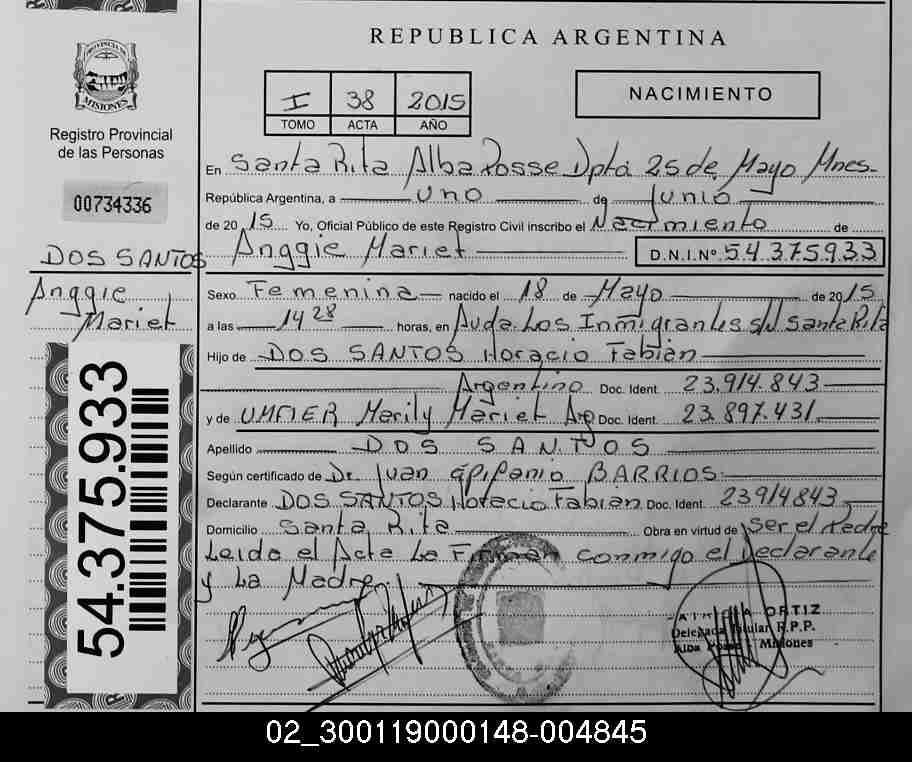 REPUBLICA ARGENTINA
PROVINCIA DE MISIONES
Registro Provincial
de las Personas
00734336
DOS SANTOS
Anggie
Mariet
54.375.933
I 38 2015
TOMO ACTA AÑO
NACIMIENTO
En Santa Rita Alba Posse Dpto 25 de Mayo Mnes.
República Argentina, a uno de Junio
de 2015 Yo, Oficial Público de este Registro Civil inscribo el Nacimiento de
Anggie Mariet D.N.I.Nº 54.375.933
Sexo Femenina nacido el 18 de Mayo de 2015
a las 14 28 horas, en Avda. Los Inmigrantes s/N Santa Rita
Hijo de DOS SANTOS Horacio Fabian
Argentino Doc. Ident. 23.914.843
y de Marily Mariet Arg Doc. Ident. 23.897.431
Apellido DOS SANTOS
Según certificado de Dr. Juan Epifanio BARRIOS
Declarante DOS SANTOS Horacio Fabian Doc. Ident. 23914843
Domicilio Santa Rita Obra en virtud de Ser el Padre
Leida el Acta La Firman conmigo el Declarante
y La Madre
ORTIZ
Delegada Titular R.P.P.
Alba Posse Misiones
02_300119000148-004845